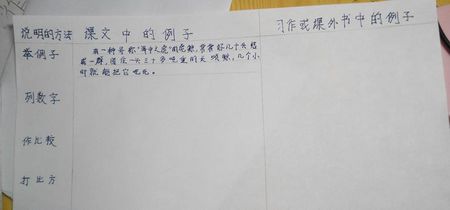 说明的方法 课文中的例子 习作或课外书中的例子
举例子 有一种号称“海中之虎”的虎鲸，常常好几十头结
成一群，围住一头三十多吨重的长须鲸，几个小
时就能把它吃光。
列数字
作比较
打比方